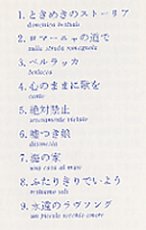 1. ときめきのストーリア
domenica bestiale
2. ロマーニャの道で
sulla strada romagnola
3. ベルラッカ
berlacca
4. 心のままに歌を
canto
5. 絶対禁止
severamente vietato
6. 嘘つき娘
disonesta
7. 海の家
una casa al mare
8. ふたりきりでいよう
restiamo soli
9. 永遠のラヴソング
un piccolo vecchio amore